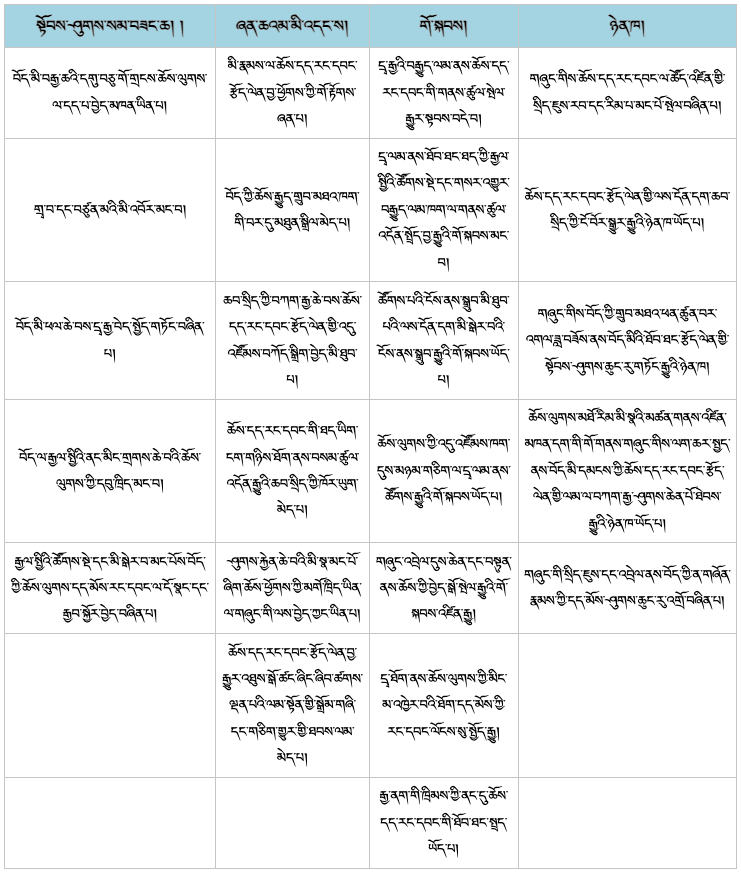 སྟོབས་ཤུགས་སམ་བཟང་ཆ། །
ཞན་ཆའམ་མི་འདང་ས།
གོ་སྐབས།
ཉེན་ཁ།
བོད་མི་བརྒྱ་ཆའི་དགུ་བཅུ་གོ་གྲངས་ཆོས་ལུགས་
ལ་དད་པ་བྱེད་མཁན་ཡིན་པ།
མི་རྣམས་ལ་ཆོས་དད་རང་དབང་
རྩོད་ལེན་བྱ་ཕྱོགས་ཀྱི་གོ་རྟོགས་
ཞན་པ།
དྲ་རྒྱའི་བརྒྱུད་ལམ་ནས་ཆོས་དད་
རང་དབང་གི་གནས་ཚུལ་སྤེལ་
རྒྱུར་སྟབས་བདེ་བ།
གཞུང་གིས་ཆོས་དད་རང་དབང་ལ་ཚོད་འཛིན་གྱི་
སྲིད་ཇུས་རབ་དང་རིམ་པ་མང་པོ་སྤེལ་བཞིན་པ།
གྲྭ་བ་དང་བཙུན་མའི་མི་འབོར་མང་བ།
བོད་ཀྱི་ཆོས་རྒྱུད་གྲུབ་མཐའ་ཁག་
གི་བར་དུ་མཐུན་སྒྲིལ་མེད་པ།
དྲྭ་ལམ་ནས་ཐོབ་ཐང་ཐད་ཀྱི་རྒྱལ་
སྤྱིའི་ཚོགས་སྡེ་དང་གསར་འགྱུར་
བརྒྱུད་ལམ་ཁག་ལ་གནས་ཚུལ་
འདོན་སྤྲོད་བྱ་རྒྱུའི་གོ་སྐབས་མང་
བ།
ཆོས་དད་རང་དབང་རྩོད་ལེན་གྱི་ལས་དོན་དག་ཆབ་
སྲིད་ཀྱི་ངོ་བོར་སྒྱུར་རྒྱུའི་ཉེན་ཁ་ཡོད་པ།
བོད་མི་ཕལ་ཆེ་བས་དྲྭ་རྒྱ་བེད་སྤྱོད་གཏོང་བཞིན་
པ།
ཆབ་སྲིད་ཀྱི་བཀག་རྒྱ་ཆེ་བས་ཆོས་
དད་རང་དབང་རྩོད་ལེན་གྱི་འདུ་
འཛོམས་བཀོད་སྒྲིག་བྱེད་མི་ཐུབ་
པ།
ཚོགས་པའི་ངོས་ནས་སྒྲུབ་མི་ཐུབ་
པའི་ལས་དོན་དག་མི་སྒེར་བའི་
ངོས་ནས་སྒྲུབ་རྒྱུའི་གོ་སྐབས་ཡོད་
པ།
གཞུང་གིས་བོད་ཀྱི་གྲུབ་མཐའ་ཕན་ཚུན་བར་
འགལ་ཟླ་བཟོས་ནས་བོད་མིའི་ཐོབ་ཐང་རྩོད་ལེན་གྱི་
སྟོབས་ཤུགས་ཆུང་རུ་གཏོང་རྒྱུའི་ཉེན་ཁ།
བོད་ལ་རྒྱལ་སྤྱིའི་ནང་མིང་གྲགས་ཆེ་བའི་ཆོས་
ལུགས་ཀྱི་དབུ་ཁྲིད་མང་བ།
ཆོས་དད་རང་དབང་གི་ཐད་ཡིག་
ངག་གཉིས་ཐོག་ནས་བསམ་ཚུལ་
འདོན་རྒྱུའི་ཆབ་སྲིད་ཀྱི་ཁོར་ཡུག་
མེད་པ།
ཆོས་ལུགས་ཀྱི་འདུ་འཛོམས་ཁག་
དུས་མཉམ་གཅིག་ལ་དྲྭ་ལམ་ནས་
ཚོགས་རྒྱུའི་གོ་སྐབས་ཡོད་པ།
ཆོས་ལུགས་མཐོ་རིམ་མི་སྣའི་མཚན་གནས་འཛིན་
མཁན་དག་གི་གོ་གནས་གཞུང་གིས་ལག་ཆར་སྤྱད་
ནས་བོད་མི་དམངས་ཀྱི་ཆོས་དད་རང་དབང་རྩོད་
ལེན་གྱི་ལམ་ལ་བཀག་རྒྱ་ཤུགས་ཆེན་པོ་ཐེབས་
རྒྱུའི་ཉེན་ཁ་ཡོད་པ།
རྒྱལ་སྤྱིའི་ཚོགས་སྡེ་དང་མི་སྒེར་བ་མང་པོས་བོད་
ཀྱི་ཆོས་ལུགས་དད་མོས་རང་དབང་ལ་དོ་སྣང་དང་
རྒྱབ་སྐྱོར་བྱེད་བཞིན་པ།
ཤུགས་རྐྱེན་ཆེ་བའི་མི་སྣ་མང་པོ་
ཞིག་ཆོས་ཕྱོགས་ཀྱི་མགོ་ཁྲིད་ཡིན་
ལ་གཞུང་གི་ལས་བྱེད་ཀྱང་ཡིན་པ།
གཞུང་འབྲེལ་དུས་ཆེན་དང་བསྟུན་
ནས་ཆོས་ཀྱི་བྱེད་སྒོ་སྤེལ་རྒྱུའི་གོ་
སྐབས་འཛིན་རྒྱུ།
གཞུང་གི་སྲིད་ཇུས་དང་འབྲེལ་ནས་བོད་ཀྱི་ན་གཞོན་
རྣམས་ཀྱི་དད་མོས་ཤུགས་ཆུང་རུ་འགྲོ་བཞིན་པ།
ཆོས་དད་རང་དབང་རྩོད་ལེན་བྱ་
རྒྱུར་འཐུས་སྒོ་ཚང་ཞིང་ཞིབ་ཚགས་
ལྡན་པའི་ལམ་སྟོན་གྱི་སྒྲོམ་གཞི་
དང་གཅིག་གྱུར་གྱི་ཐབས་ལམ་
མེད་པ།
དྲྭ་ཐོག་ནས་ཆོས་ལུགས་ཀྱི་མིང་
མ་འཁྱེར་བའི་ཐོག་དད་མོས་ཀྱི་
རང་དབང་ལོངས་སུ་སྤྱོད་རྒྱུ།
རྒྱ་ནག་གི་ཁྲིམས་ཀྱི་ནང་དུ་ཆོས་
དད་རང་དབང་གི་ཐོབ་ཐང་སྤྲད་
ཡོད་པ།